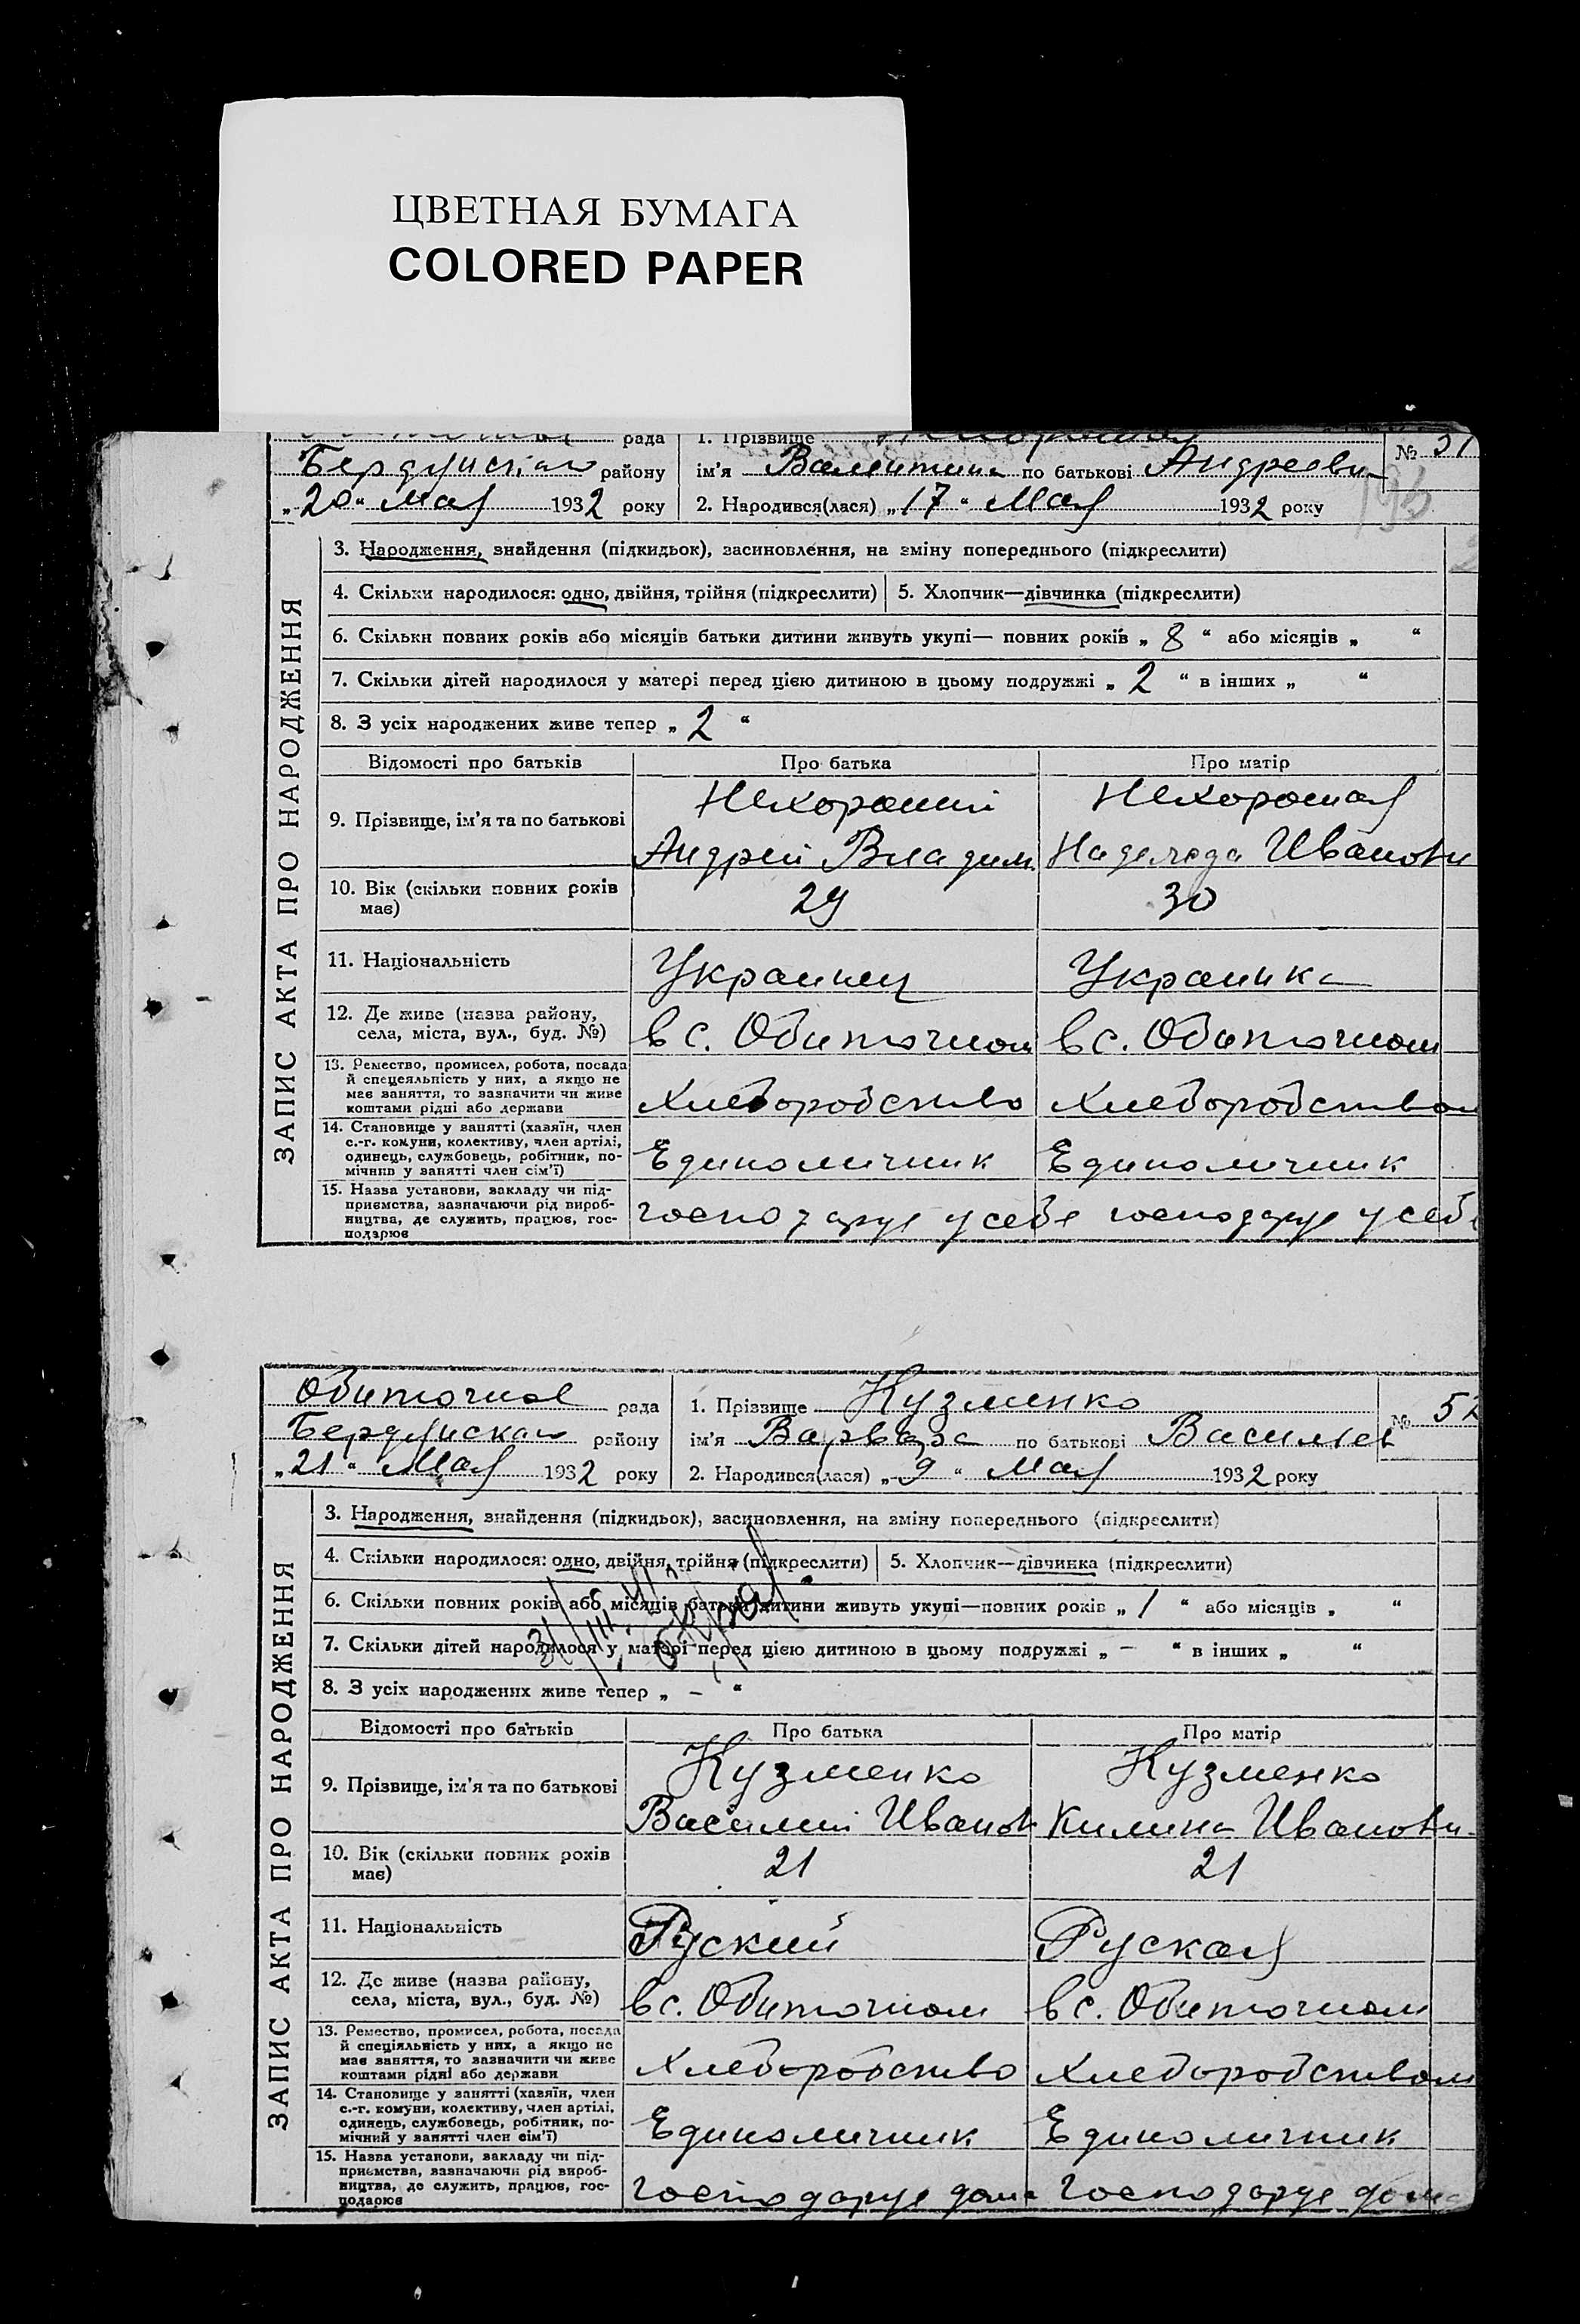 ЦВЕТНАЯ БУМАГА
COLORED PAPER
рада 1. Прізвище № 51
району ім'я Валентина по батькові Андреевн
„20“ Мая 1932 року 2. Народився(лася) „17“ Мая 1932 року
ЗАПИС АКТА ПРО НАРОДЖЕННЯ
3. Народження, знайдення (підкидьок), засиновлення, на зміну попереднього (підкреслити)
4. Скільки народилося: одно, двійня, трійня (підкреслити) 5. Хлопчик—дівчинка (підкреслити)
6. Скільки повних років або місяців батьки дитини живуть укупі— повних років „ 8 “ або місяців „ “
7. Скільки дітей народилося у матері перед цією дитиною в цьому подружжі „ 2 “ в інших „ “
8. З усіх народжених живе тепер „ 2 “
Відомості про батьків Про батька Про матір
9. Прізвище, ім'я та по батькові Нехороший Нехорошая
Андрей Владим Надежда Ивановн
10. Вік (скільки повних років 29 30
має)
11. Національність Украинец Украинка
12. Де живе (назва району,
села, міста, вул., буд. №) в с. Обиточном в с. Обиточном
13. Ремество, промисел, робота, посада
й спецеяльність у них, а якщо не
має заняття, то зазначити чи живе
коштами рідні або держави Хлеборобство Хлеборобством
14. Становище у занятті (хазяїн, член
с.-г. комуни, колективу, член артілі,
одинець, службовець, робітник, по-
мічник у занятті член сім'ї) Единоличник Единоличник
15. Назва установи, закладу чи під-
приємства, зазначаючи рід вироб-
ництва, де служить, працює, гос-
подарює господарує у себе господарує у себе
Обиточное рада 1. Прізвище Кузменко № 52
району ім'я Варвара по батькові Васильев
„21“ Мая 1932 року 2. Народився(лася) „9“ Мая 1932 року
ЗАПИС АКТА ПРО НАРОДЖЕННЯ
3. Народження, знайдення (підкидьок), засиновлення, на зміну попереднього (підкреслити)
4. Скільки народилося: одно, двійня, трійня (підкреслити) 5. Хлопчик—дівчинка (підкреслити)
6. Скільки повних років або місяців батьки дитини живуть укупі—повних років „ 1 “ або місяців „ “
7. Скільки дітей народилося у матері перед цією дитиною в цьому подружжі „ – “ в інших „ “
8. З усіх народжених живе тепер „ – “
Відомості про батьків Про батька Про матір
9. Прізвище, ім'я та по батькові Кузменко Кузменко
Василий Иванов Килина Ивановн
10. Вік (скільки повних років 21 21
має)
11. Національність Руский Руская
12. Де живе (назва району,
села, міста, вул., буд. №) в с. Обиточном в с. Обиточном
13. Ремество, промисел, робота, посада
й спеціяльність у них, а якщо не
має заняття, то зазначити чи живе
коштами рідні або держави Хлеборобство Хлеборобством
14. Становище у занятті (хазяїн, член
с.-г. комуни, колективу, член артілі,
одинець, службовець, робітник, по-
мічний у занятті член сім'ї) Единоличник Единоличник
15. Назва установи, закладу чи під-
приємства, зазначаючи рід вироб-
ництва, де служить, працює, гос-
подарює господарує дома господарує дома